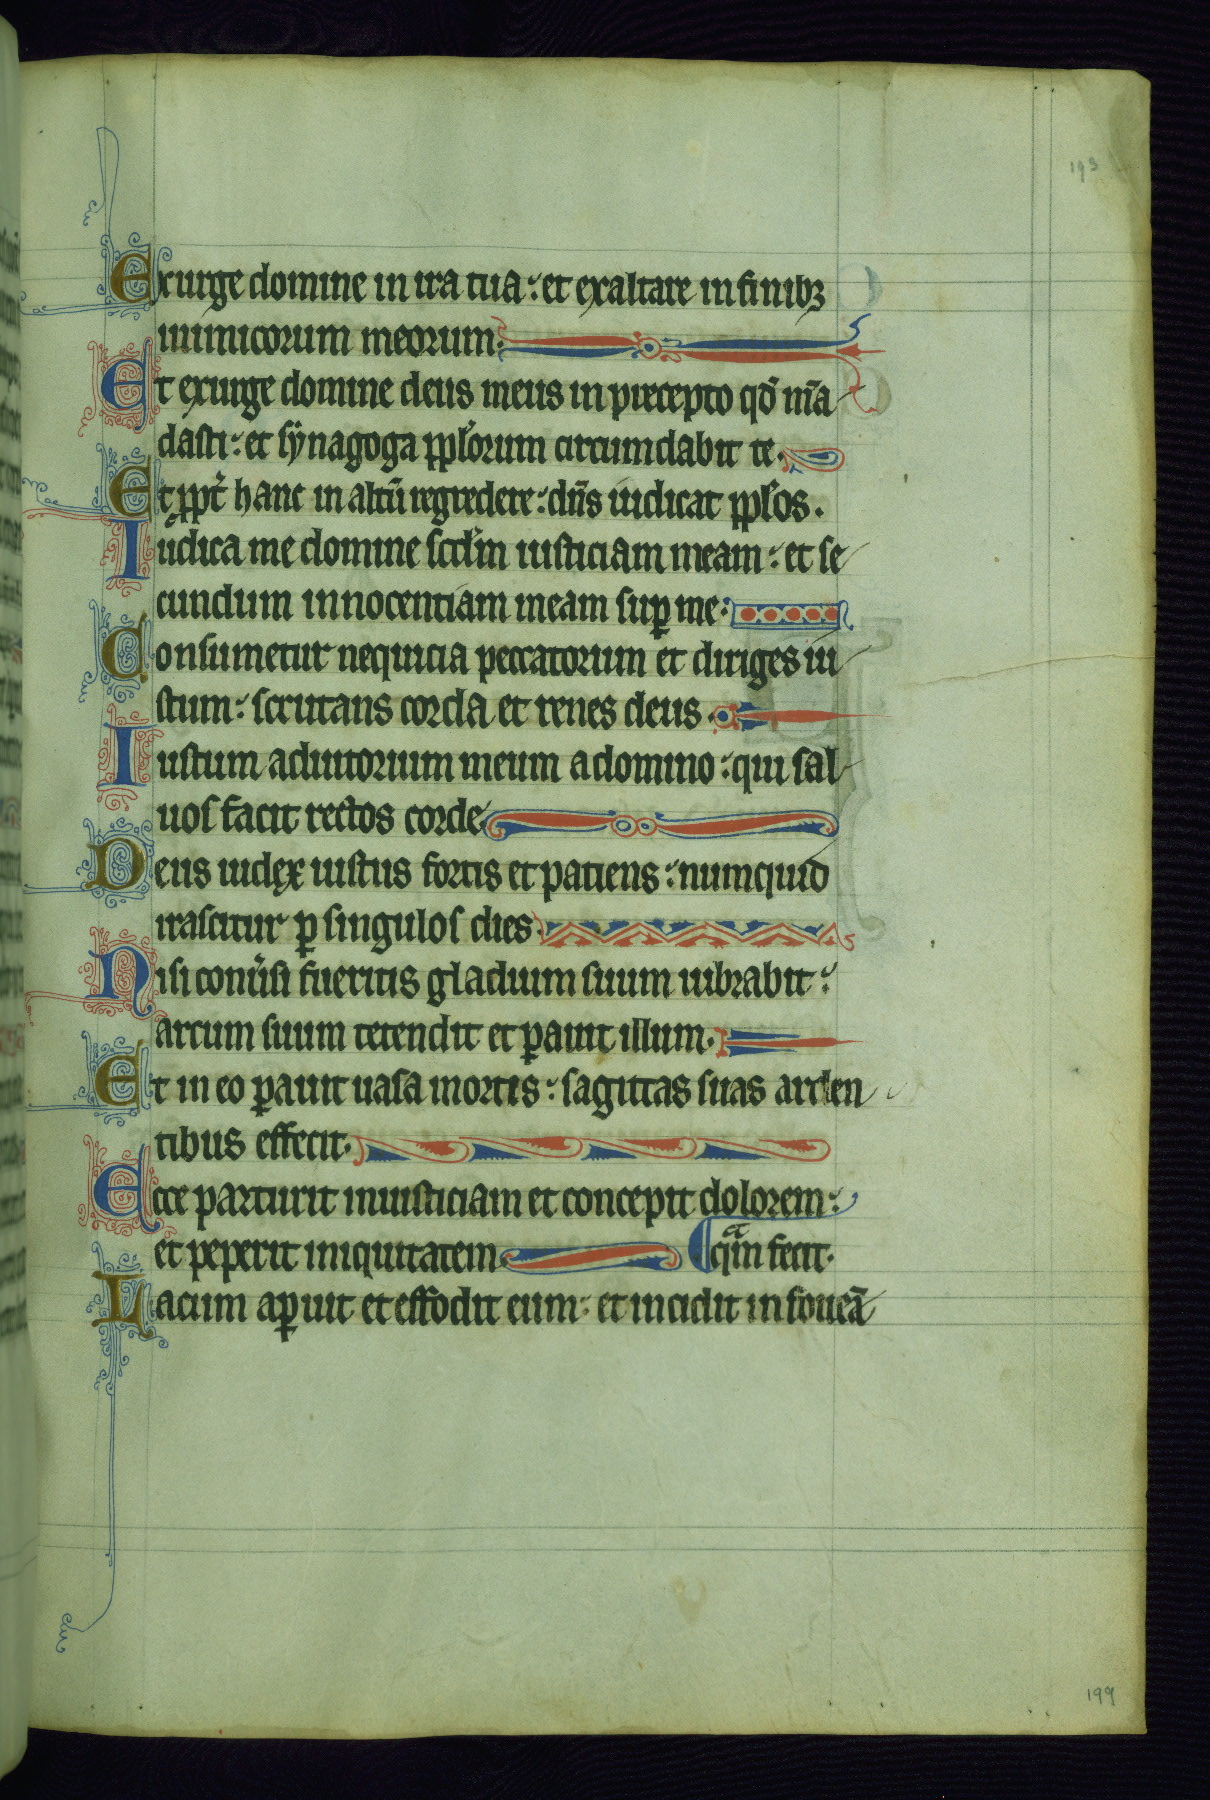 193
Exurge domine in ira tua : et exaltare in finibꝫ
inimicorum meorum :
Et exurge domine deus meus in precepto qd̄ mā
dasti : et synagoga ppl̄orum circumdabit te .
Et ppt̄ hanc in altū regredere : dn̄s iudicat ppl̄os .
Iudica me domine scd̄m iusticiam meam : et se
cundum innocentiam meam suꝑ me :
Consumetur nequicia peccatorum et diriges iu
stum : scrutans corda et renes deus .
Iustum adiutorium meum a domino : qui sal
uos facit rectos corde
Deus iudex iustus fortis et patiens : numquid
irascitur ꝑ singulos dies .
Nisi conu̓si fueritis gladium suum uibrabit :
arcum suum tetendit et ꝑauit illum .
Et in eo ꝑauit uasa mortis : sagittas suas arden
tibus effecit .
Ecce parturit iniusticiam et concepit dolorem :
et peperit iniquitatem . qͣm fecit .
Lacum aꝑuit et effodit eum : et incidit in foueā
199